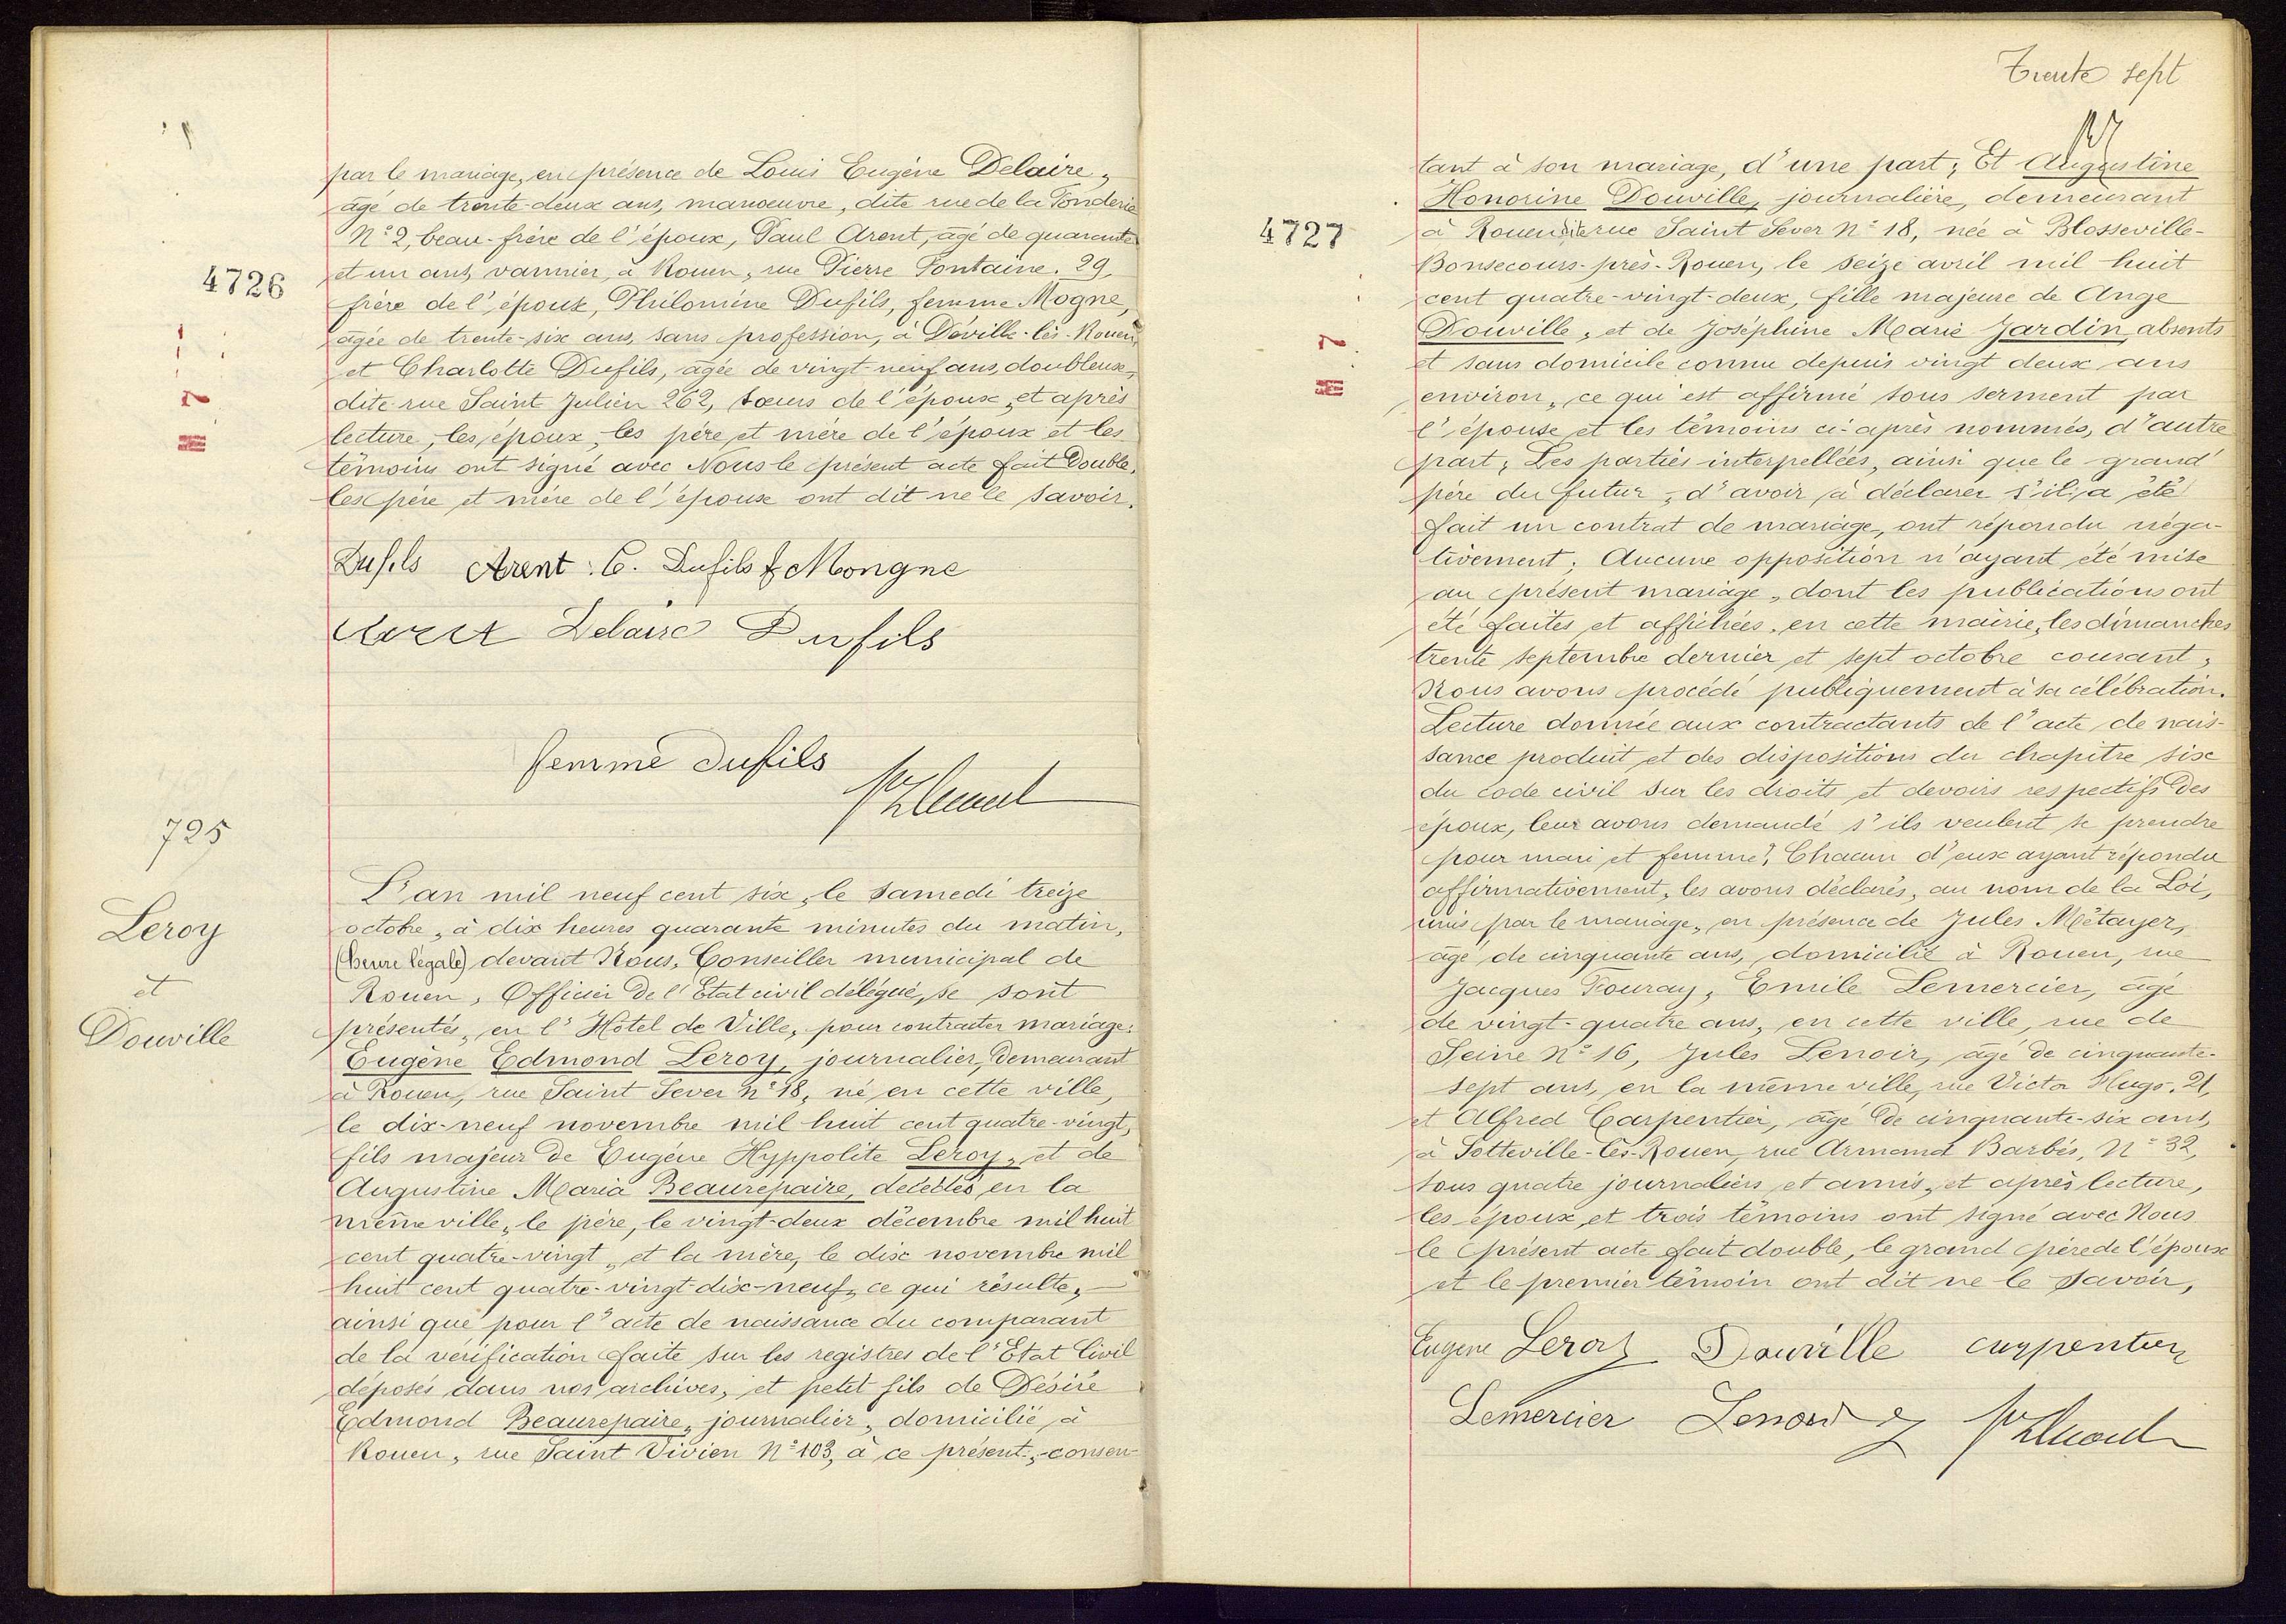 par le mariage, en présence de Louis Eugène Delaire,
âgé de trente-deux ans, manoeuvre, dite rue de la Fonderie
N° 2, beau-frère de l'époux, Paul Arent, âgé de quarante
et un ans, vannier, à Rouen, rue Pierre Fontaine. 29,
4726
frère de l'époux, Philomine Dufils, femme Mogne,
âgée de trente-six ans, sans profession, à Déville-lès-Rouen,
et Charlotte Dufils, âgée de vingt-neuf ans, doubleuse,
dite rue Saint Julien 262, soeurs de l'épouse, et après
lecture, les époux, les père et mère de l'époux et les
témoins ont signé avec Nous le présent acte fait Double,
les père et mère de l'épouse ont dit ne le savoir.
Dufils Arent. C. Dufils f Mongne
Arent Delaire Dufils
femme Dufils
725
Leroy
et
Douville
L'an mil neuf cent six, le samedi treize
octobre, à dix heures quarante minutes du matin,
(heure légale) devant Nous, Conseiller municipal de
Rouen, Officier De l'Etat civil délégué, se sont
présentés, en l'Hôtel de Ville, pour contracter mariage:
Eugène Edmond Leroy, journalier, Demeurant
à Rouen, rue Saint Sever n° 18, né en cette ville,
le dix-neuf novembre mil huit cent quatre-vingt,
fils majeur De Eugène Hyppolite Leroy, et de
Augustine Maria Beaurepaire, décédés en la
même ville, le père, le vingt-deux décembre mil huit
cent quatre-vingt, et la mère, le dix novembre mil
huit cent quatre-vingt-dix-neuf, ce qui résulte,
ainsi que pour l'acte de naissance du comparant
de la vérification faite sur les registres de l'Etat Civil
déposés dans nos archives, et petit fils de Désiré
Edmond Beaurepaire, journalier, domicilié à
Rouen, rue Saint Vivien N° 103, à ce présent, consen-
Trente sept
4727
tant à son mariage, d'une part; Et Augustine
Honorine Douville, journalière, demeurant
à Rouen, dite rue Saint Sever N° 18, née à Blosseville-
Bonsecours-près-Rouen, le seize avril mil huit
cent quatre-vingt-deux, fille majeure de Ange
Douville, et de Joséphine Marie Jardin, absents
et sans domicile connu depuis vingt deux ans
environ, ce qui est affirmé sous serment par
l'épouse et les témoins ci-après nommés, d'autre
part; Les parties interpellées, ainsi que le grand
père du futur, d'avoir à déclarer s'il a été
fait un contrat de mariage, ont répondu néga-
tivement; Aucune opposition n'ayant été mise
au présent mariage, dont les publications ont
été faites et affichées, en cette mairie, les dimanches
trente septembre dernier et sept octobre courant,
Nous avons procédé publiquement à sa célébration.
Lecture donnée aux contractants de l'acte de nais-
sance produit et des dispositions du chapitre six
du code civil sur les droits et devoirs respectifs Des
époux, leur avons demandé s'ils veulent se prendre
pour mari et femme? Chacun d'eux ayant répondu
affirmativement, les avons déclarés, au nom de la Loi,
unis par le mariage, en présence de Jules Métayer,
âgé de cinquante ans, domicilié à Rouen, rue
Jacques Fouray, Emile Lemercier, âgé
de vingt-quatre ans, en cette ville, rue de
Seine N° 16, Jules Lenoir, âgé De cinquante-
sept ans, en la même ville, rue Victor Hugo. 21,
et Alfred Carpentier, âgé De cinquante-six ans,
à Sotteville-lès-Rouen, rue Armand Barbès, N° 32,
tous quatre journaliers et amis, et après lecture,
les époux et trois témoins ont signé avec Nous
le présent acte fait double, le grand père de l'époux
et le premier témoin ont dit ne le savoir,
Eugene Leroy Douville carpentier
Lemercier Lenoir